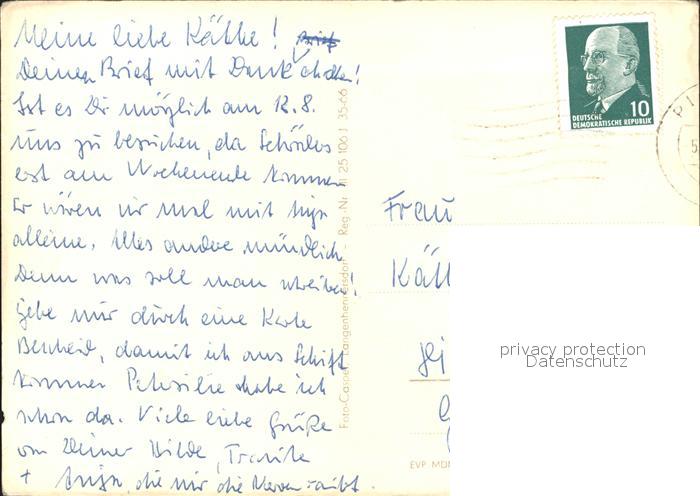 Meine liebe Käthe!
Deinen Brief mit Dank erhalten!
Ist es Dir möglich am 12.8.
uns zu besuchen, da Schröders
erst am Wochenende kommen
Er wären wir mal mit
alleine. Alles andere mündlich
Denn was soll man schreiben!
Gebe mir durch eine Karte
Bescheid, damit ich ans Schiff
komme. Petersilie habe ich
schon da. Viele liebe Grüße
von Deiner Hilde, Traute
+ die mir die Nerven raubt.
Foto-Casper, Langenhennersdorf - Reg.-Nr. III 25 106 J 35-66
10
DEUTSCHE
DEMOKRATISCHE REPUBLIK
Frau
Käth
EVP MDN
privacy protection
Datenschutz